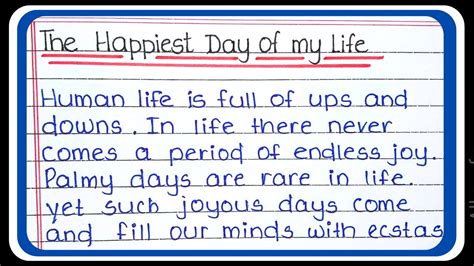 The Happiest Day of my Life
Human life is full of ups and
downs. In life there never
comes a period of endless joy.
Palmy days are rare in life.
yet such joyous days come
and fill our minds with ecstas